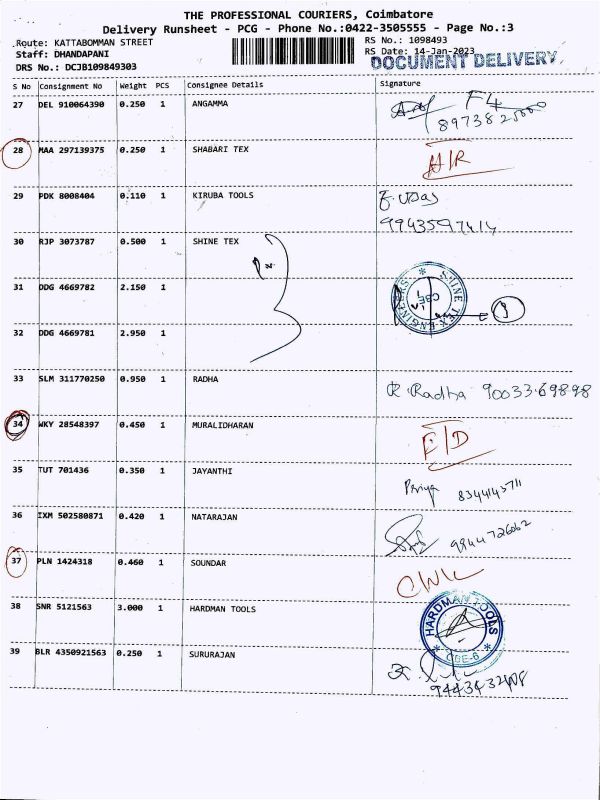 THE PROFESSIONAL COURIERS, Coimbatore
Delivery Runsheet - PCG - Phone No.:0422-3505555 - Page No.:3
Route: KATTABOMMAN STREET RS No.: 1098493
Staff: DHANDAPANI RS Date: 14-Jan-2023
DRS No.: DCJB109849303 DOCUMENT DELIVERY
S No Consignment No Weight PCS Consignee Details Signature
27 DEL 910064390 0.250 1 ANGAMMA
28 MAA 297139375 0.250 1 SHABARI TEX
29 PDK 8008404 0.110 1 KIRUBA TOOLS
9943597414
30 RJP 3073787 0.500 1 SHINE TEX
31 DDG 4669782 2.150 1 SHINE TEX ENGINEERS CBE
32 DDG 4669781 2.950 1
33 SLM 311770250 0.950 1 RADHA R. Radha 90033.69898
34 WKY 28548397 0.450 1 MURALIDHARAN
35 TUT 701436 0.350 1 JAYANTHI Priya
36 IXM 502580871 0.420 1 NATARAJAN 9944726062
37 PLN 1424318 0.460 1 SOUNDAR
38 SNR 5121563 3.000 1 HARDMAN TOOLS HARDMAN TOOLS CBE-6
39 BLR 4350921563 0.250 1 SURURAJAN